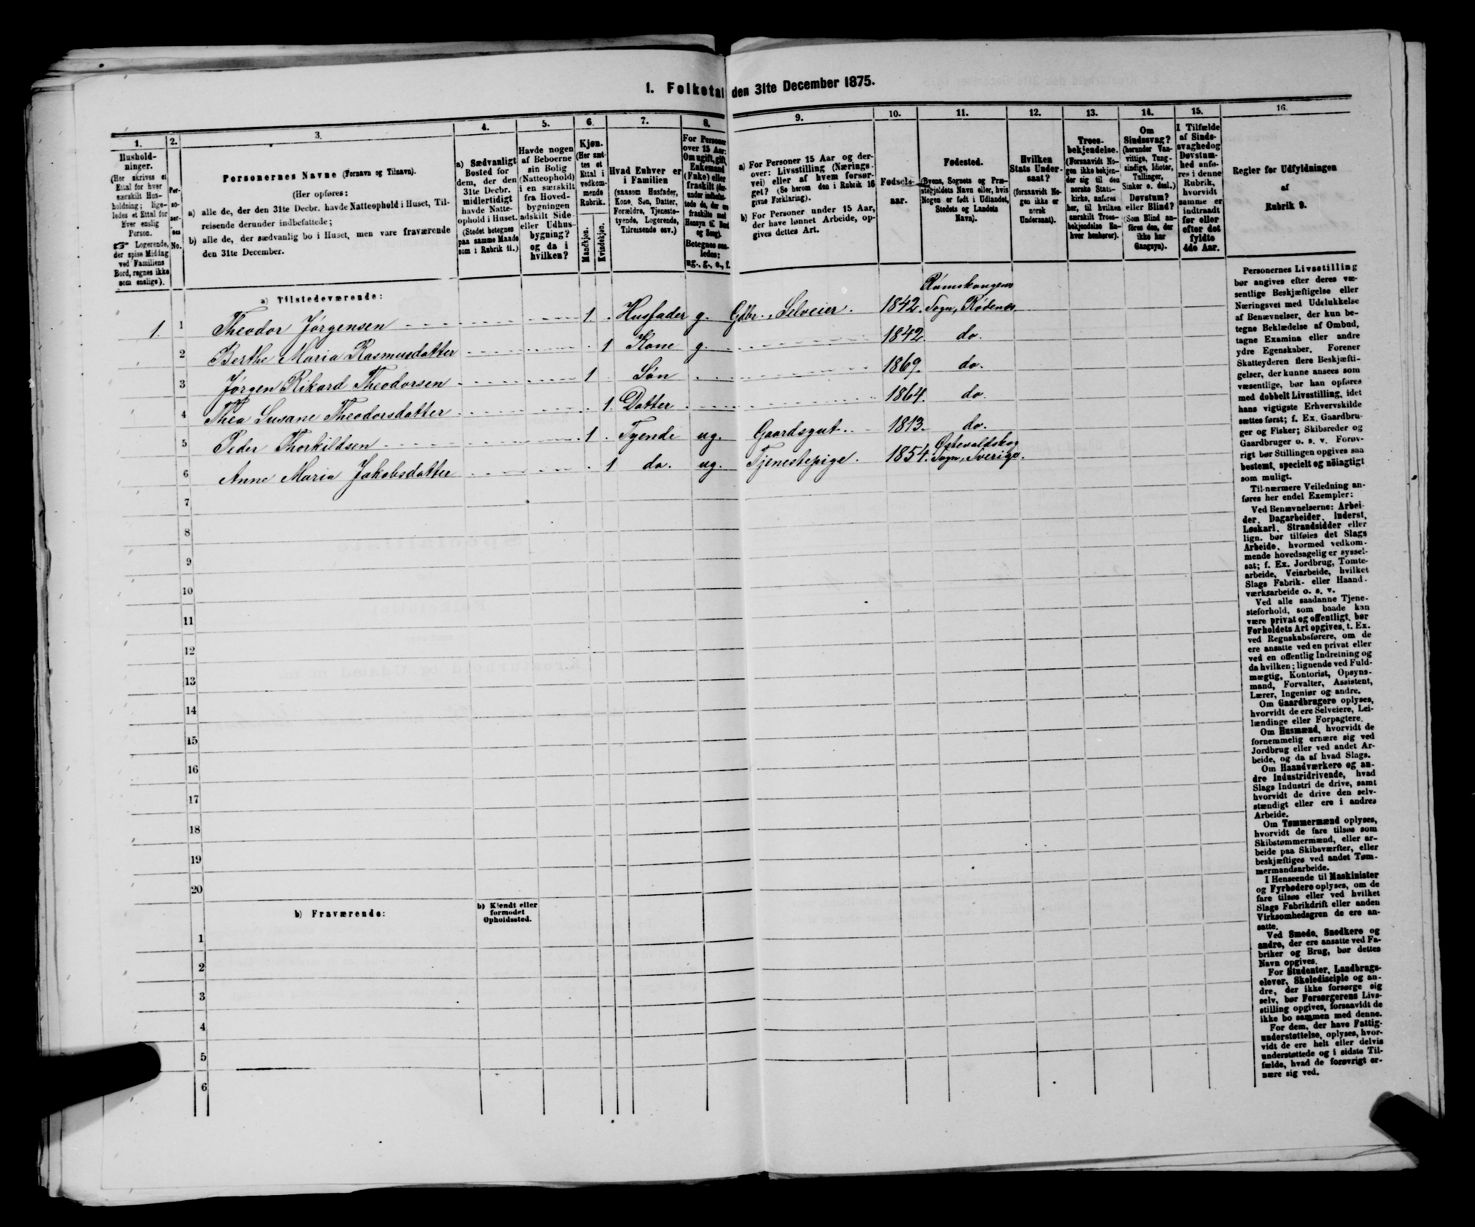 1. Folketal den 31te December 1875.
1.
2.
3.
4.
5.
6.
7.
8.
9.
10.
11.
12.
13.
14.
15.
16.
Hushold-
ninger.
(Her skrives et
Ettal for hver
særskilt Hus-
holdning; lige-
ledes et Ettal for
Hver enslig
Person.
☞ Logerende,
der spise Middag
ved Familiens
Bord, regnes ikke
som enslige).
Per-
so-
ner-
nes
No.
Personernes Navne (Fornavn og Tilnavn).
(Her opføres:
a) alle de, der den 31te Decbr. havde Natteophold i Huset, Til-
reisende derunder indbefattede;
b) alle de, der sædvanlig bo i Huset, men vare fraværende
den 31te December.
a) Sædvanligt
Bosted for
dem, der den
31te Decbr.
midlertidigt
havde Natte-
ophold i Huset.
(Stedet betegnes
paa samme Maade
som i Rubrik 11.)
Havde nogen
af Beboerne
sin Bolig
(Natteophold)
i en særskilt
fra Hoved-
bygningen
adskilt Side-
eller Udhus-
bygning?
og da i
hvilken?
Kjøn.
(Her sæt-
tes et
Ettal i
vedkom-
mende
Rubrik.
Mandkjøn.
Kvindekjøn.
Hvad Enhver er
i Familien
(saasom Husfader,
Kone, Søn, Datter,
Forældre, Tjeneste-
tyende, Logerende,
Tilreisende osv.)
For Personer
over 15 Aar:
Om ugift, gift,
Enkemand
(Enke) eller
fraskilt
Betegnes saa-
ledes:
ug., g., e., f.
a) For Personer 15 Aar og der-
over: Livsstilling (Nærings-
vei) eller af hvem forsør-
get? (Se herom den i Rubrik 16
givne Forklaring).
b) For Personer under 15 Aar,
der have lønnet Arbeide, op-
gives dettes Art.
Fødsels-
aar.
Fødested.
(Byens, Sognets og Præ-
stegjeldets Navn eller, hvis
Nogen er født i Udlandet,
Stedets og Landets
Navn).
Hvilken
Stats Under-
saat?
(forsaavidt No-
gen ikke er
norsk
Undersaat).
Troes-
bekjendelse.
(Forsaavidt No-
gen ikke bekjen-
der sig til den
norske Stats-
kirke, anføres
her, til hvilken
særskilt Troes-
bekjendelse En-
hver henhører).
Om
Sindssvag?
(herunder Van-
vittige, Tung-
sindige, Idioter,
Tullinger,
Sinker o. desl.)
Døvstum?
eller Blind?
(Som Blind an-
føres den, der
ikke har
Gangsyn).
I Tilfælde
af Sinds-
svaghed og
Døvstum-
hed anfø-
res i denne
Rubrik,
hvorvidt
samme er
indtraadt
før eller
efter det
fyldte
4de Aar.
Regler for Udfyldningen
af
Rubrik 9.
a) Tilstedeværende:
1 1 Theodor Jørgensen 1 Husfader g. Gdbr. Selveier. 1842. Rømskougens
Sogn, Rødenæs
2 Berthe Maria Rasmusdatter 1 Kone g. 1842 do.
3 Jørgen Rikard Theodorsen 1 Søn 1869. do.
4 Thea Susane Theodorsdatter 1 Datter 1864. do.
5 Peder Thorkildsen 1 Tyende ug. Gaardsgut. 1813. do.
6 Anne Maria Jakobsdatter 1 do. ug. Tjenestepige. 1854. Østevaldskog
Sogn, Sverige.
7
8
9
10
11
12
13
14
15
16
17
18
19
20
b) Fraværende:
b) Kjendt eller
formodet
Opholdssted.
1
2
3
4
5
6
Personernes Livsstilling
bør angives efter deres væ-
sentlige Beskjæftigelse eller
Næringsvei med Udelukkelse
af Benævnelser, der kun be-
tegne Beklædelse af Ombud,
tagne Examina eller andre
ydre Egenskaber. Forener
Skatteyderen flere Beskjæfti-
gelser, der kunne ansees som
væsentlige, bør han opføres
med dobbelt Livsstilling, idet
hans vigtigste Erhvervskilde
sættes først; f. Ex. Gaardbru-
ger og Fisker; Skibsreder og
Gaardbruger o. s. v. Forøv-
rigt bør Stillingen opgives saa
bestemt, specielt og nöiagtigt
som muligt.
Til nærmere Veiledning an-
føres her endel Exempler:
Ved Benævnelserne: Arbei-
der, Dagarbeider, Inderst,
Løskarl, Strandsidder eller
lign. bør tilføies det Slags
Arbeide, hvormed vedkom-
mende hovedsagelig er syssel-
sat; f. Ex. Jordbrug, Tomte-
arbeide, Veiarbeide, hvilket
Slags Fabrik- eller Haand-
værksarbeide o. s. v.
Ved alle saadanne Tjene-
steforhold, som baade kan
være privat og offentligt, bør
Forholdets Art opgives, t. Ex.
ved Regnskabsførere, om de
ere ansatte ved en privat eller
ved en offentlig Indretning og
da hvilken; lignende ved Fuld-
mægtig, Kontorist, Opsyns-
mand, Forvalter, Assistent,
Lærer, Ingeniør og andre.
Om Gaardbrugere oplyses,
hvorvidt de ere Selveiere, Lei-
lændinge eller Forpagtere.
Om Husmænd, hvorvidt de
fornemmelig ernære sig ved
Jordbrug eller ved andet Ar-
beide, og da af hvad Slags.
Om Haandværkere og an-
dre Industridrivende, hvad
Slags Industri de drive, samt
hvorvidt de drive den selv-
stændigt eller ere i andres
Arbeide.
Om Tømmermænd oplyses,
hvorvidt de fare tilsøs som
Skibstømmermænd, eller ar-
beide paa Skibsværfter, eller
beskjæftiges ved andet Tøm-
mermandsarbeide.
I Henseende til Maskinister
og Fyrbødere oplyses, om de
fare tilsøs eller ved hvilket
Slags Fabrikdrift eller anden
Virksomhedsgren de ere an-
satte.
Ved Smede, Snedkere og
andre, der ere ansatte ved Fa-
briker og Brug, bør dettes
Navn opgives.
For Studenter, Landbrugs-
elever, Skoledisciple og an-
dre, der ikke forsørge sig
selv, bør Forsørgerens Livs-
stilling opgives, forsaavidt de
ikke bo sammen med denne.
For dem, der have Fattig-
understøttelse, oplyses, hvor-
vidt de ere helt eller delvis
understøttede og i sidste Til-
fælde, hvad de forøvrigt er-
nære sig ved.